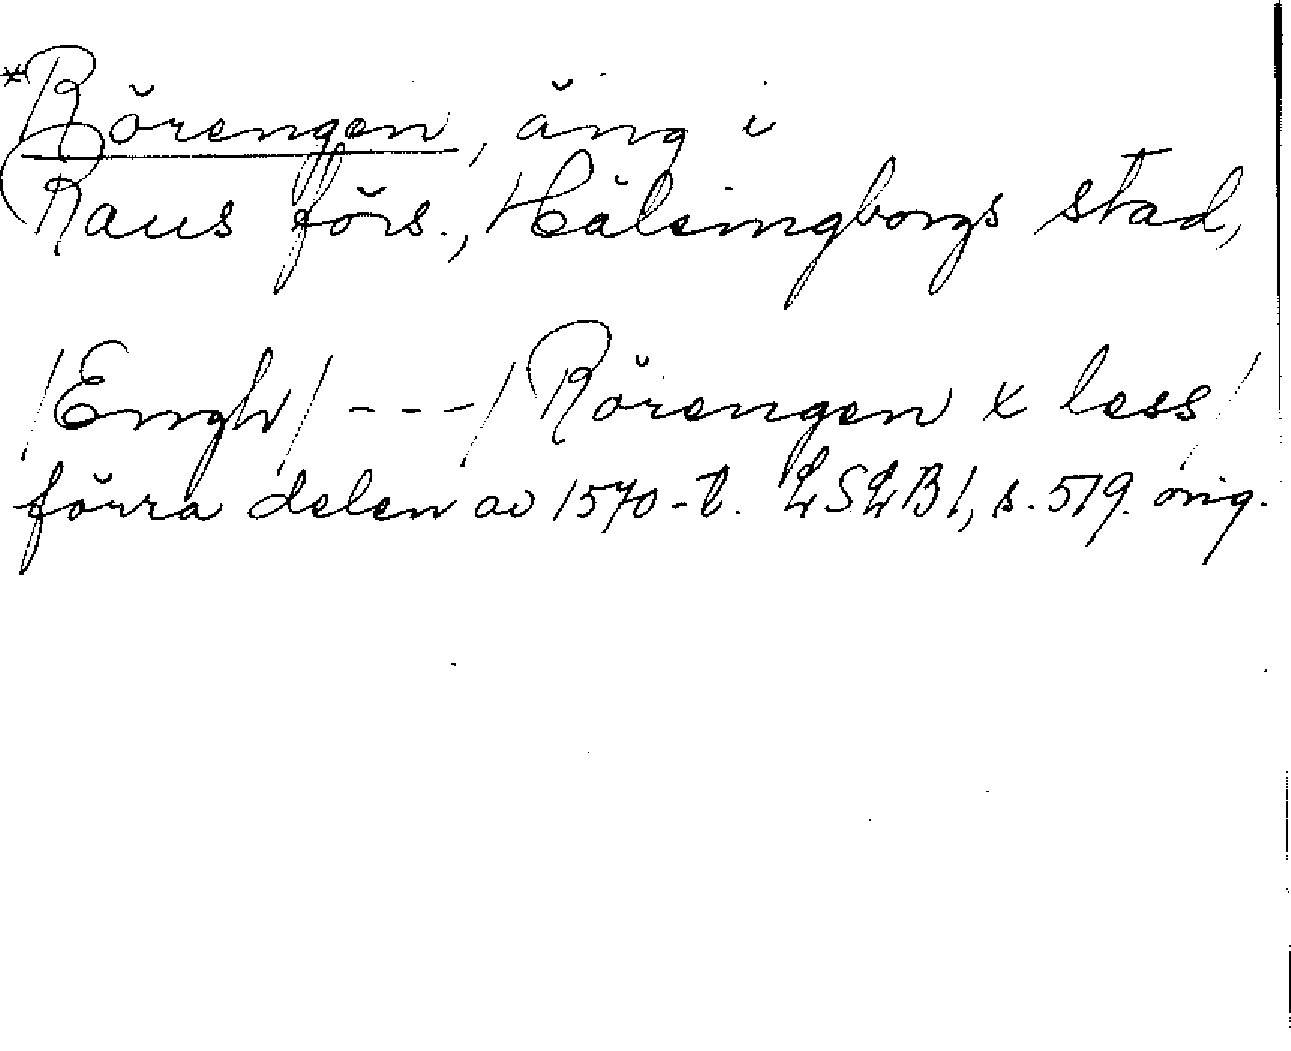 *Rörengen, äng i
Raus förs., Hälsingborgs stad,
/Engh/ --- / Rörengen x less/
förra delen av 1570-t. LSLB1, s. 519. orig.